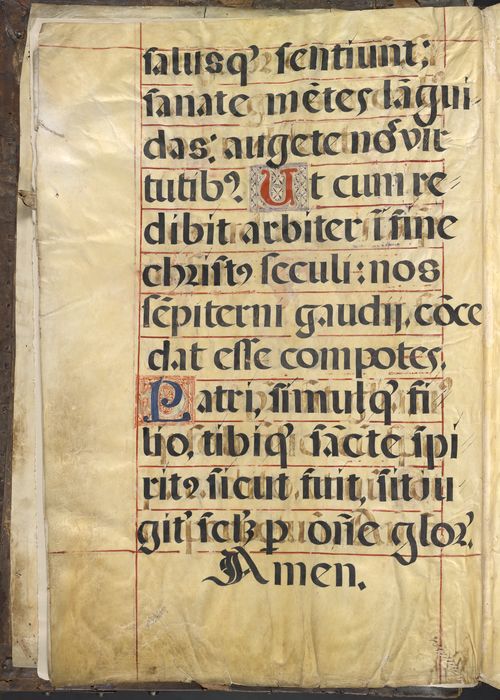 salusq᷒ sentiunt;
sanate mētes lāgui
das: augete nōs vir
tutib᷒. Ut cum re
dibit arbiter ī fine
christ᷒ seculi: nos
sēpiterni gaudij, cōce
dat esse compotes.
Patri, simulq᷒ fi
lio, tibiq᷒ sācte spi
rit᷒. sicut fuit, sit iu
git᷒ sclꝫ p oñe glor᷒.
Amen.